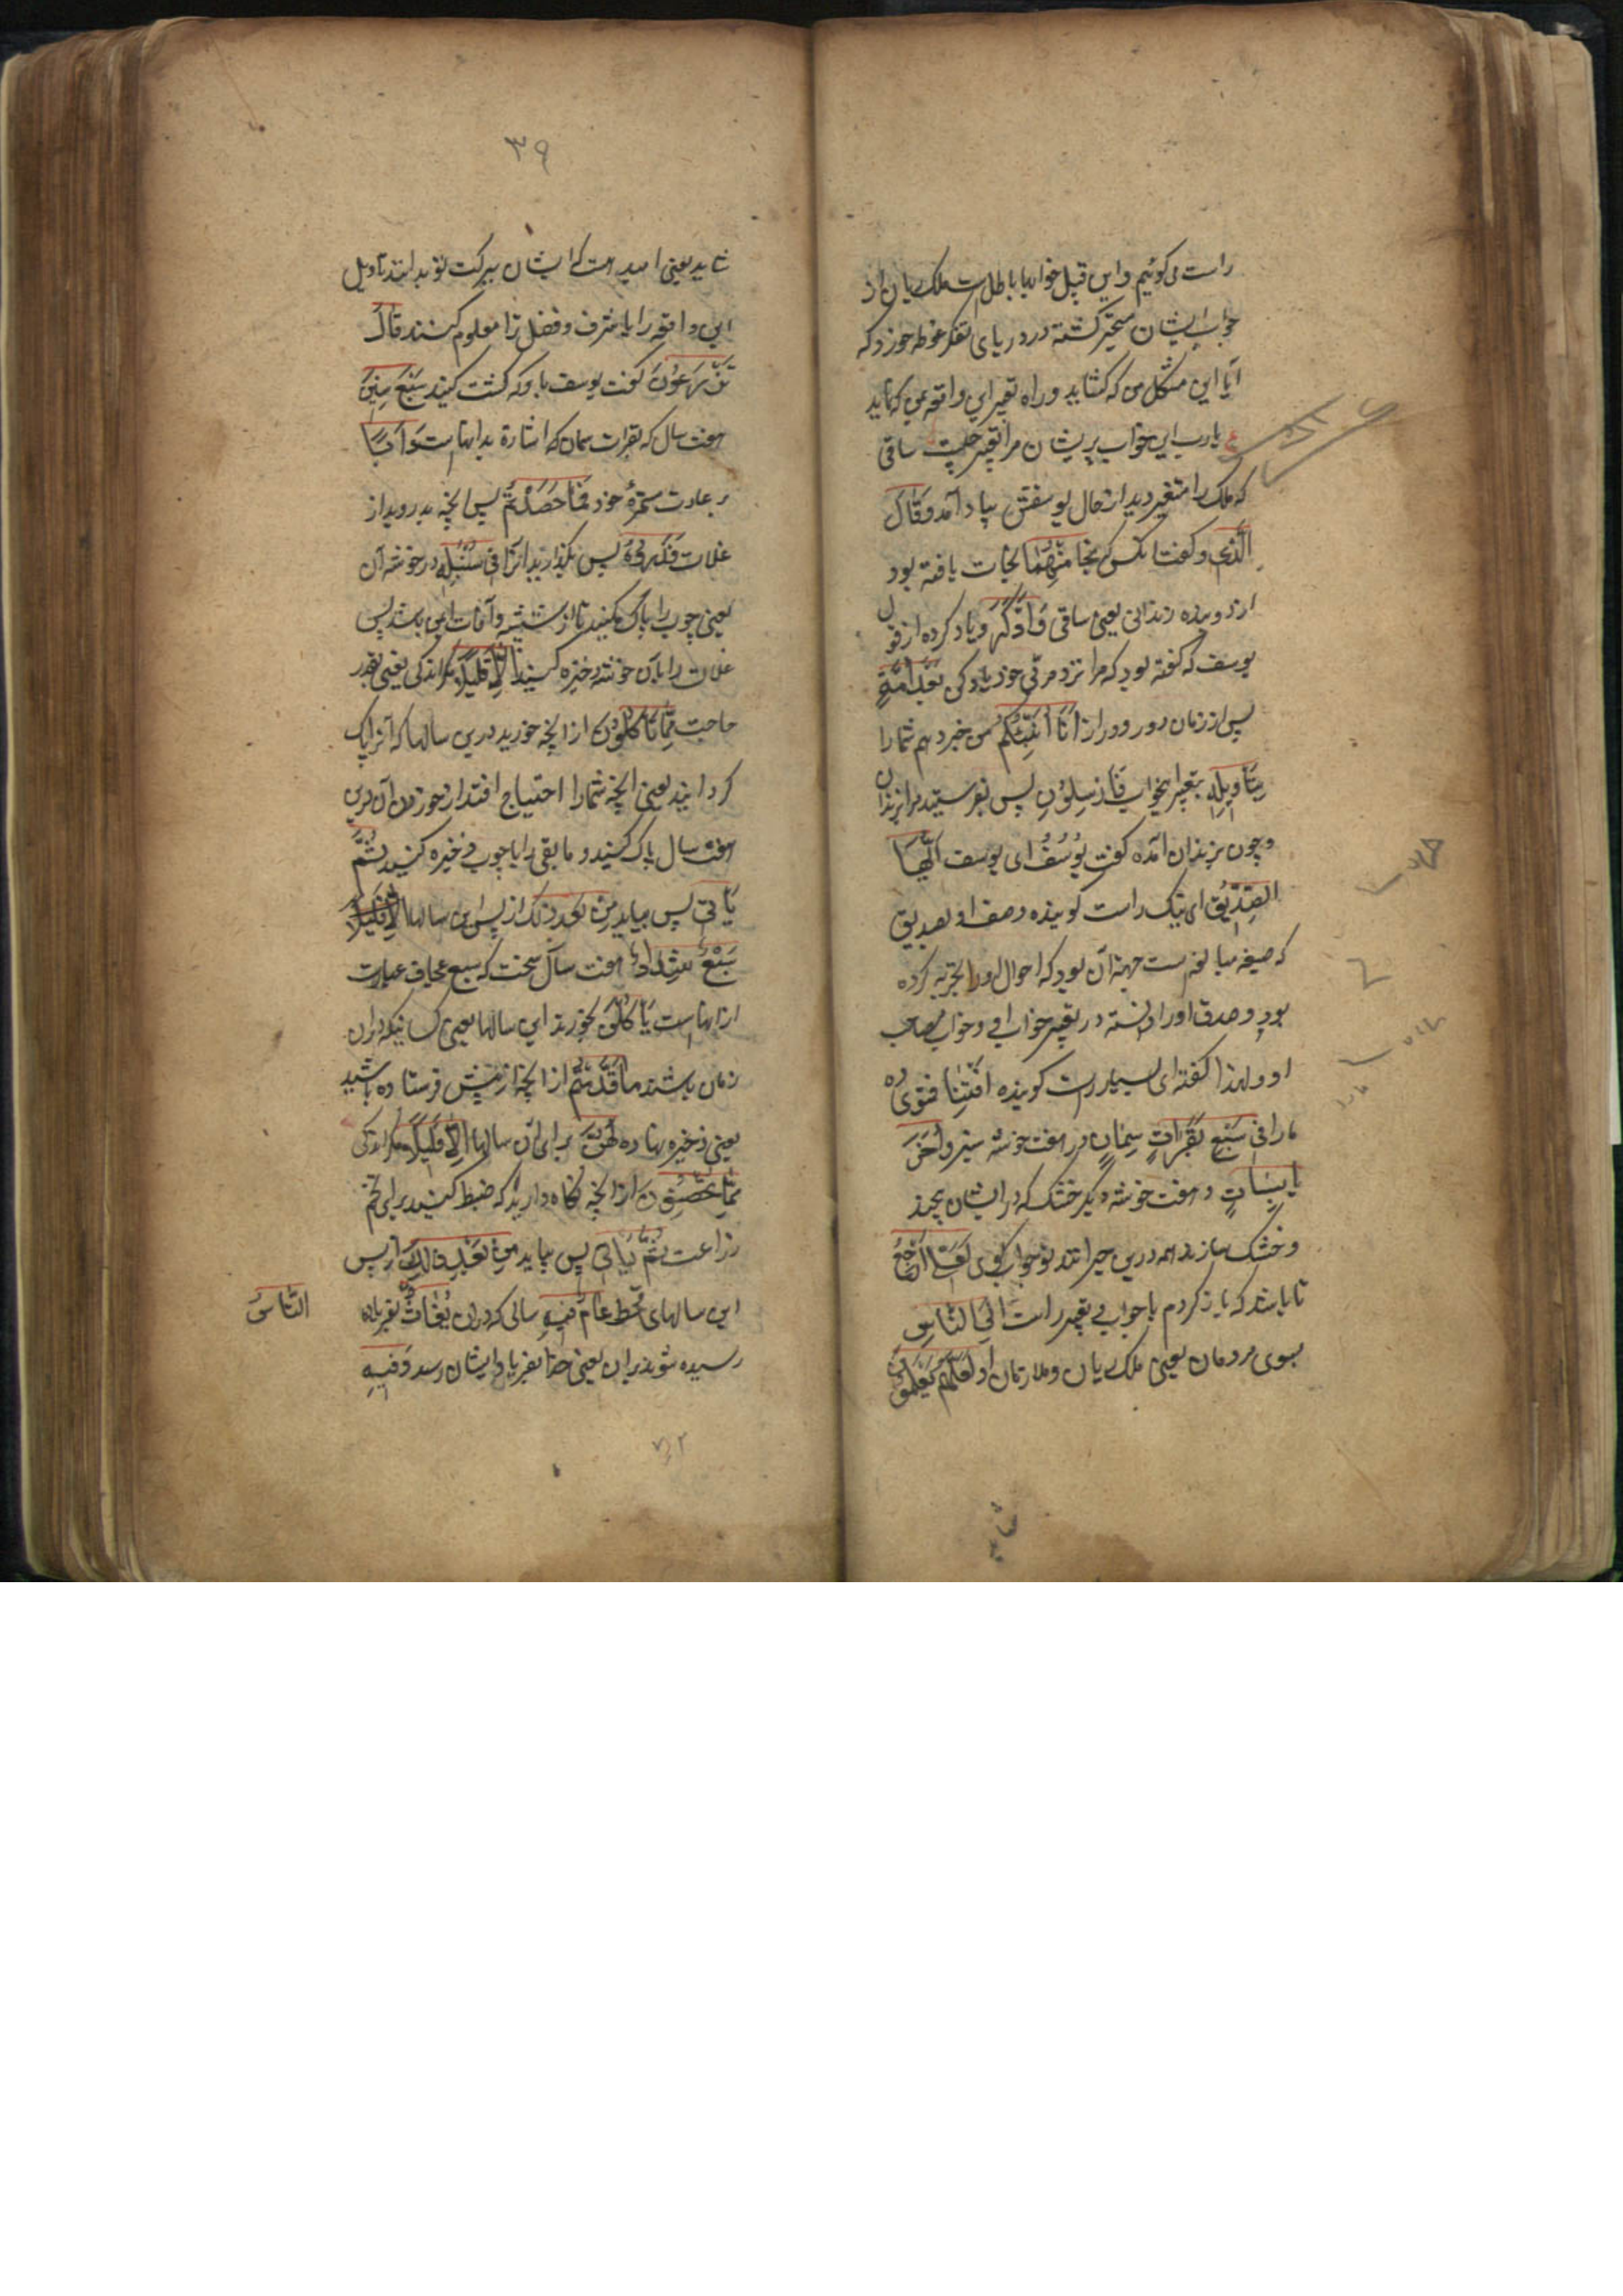 راست می کوئیم و این قبیل خوابها باطل است ملک ریان از
جواب ایشان متحیر کشته در دریای تفکر غوطه خورد که
آیا این مشکل من که کشاید و راه تعبیر این واقعه بمن که نماید
ع یارب این خواب پریشان مرا تعبیر چیست ساقی
که ملک را متغیر دید از حال یوسفش بیاد آمد وَقَالَ
الَّذِی و کفت انکس که نَجَا مِنْهُمَا نجات یافته بود
از دو بنده زندانی یعنی ساقی وَادَّكَرَ و یاد کرده از قول
یوسف که کفته بود که مرا نزد مربّی خود یاد کن بَعْدَ اُمَّةٍ
پس از زمان دور و دراز اَنَا اُنَبِّئُكُمْ من خبر دهم شما را
بِتَاوِیلِهِ بتعبیر اینخواب فَاَرْسِلُوْنِ پس بفرستید مرا بزندان
و چون بزندان آمد کفت یُوْسُفُ ای یوسف اَیُّهَا
الصِّدِّیْقُ ای نیک راست کوینده وصف او بصدیق
که صیغه مبالغه است جهة آن بود که احوال او را تجربه کرده
بود و صدق او را دانسته در تعبیر خواب او و خواب صاحب
او و لهذا کفته ای بسیار راست کوینده اَفْتِنَا فتوی ده
ما را فِی سَبْعِ بَقَرَاتٍ سِمَانٍ در هفت خوشه سبز وَاُخَرَ
یَابِسَاتٍ و هفت خوشه دیکر خشک که در ایشان پیچند
و خشک سازند همه درین حیرانند تو جواب بکوی لَعَلِّی اَرْجِعُ
تا باشد که بازکردم با جوابی و تعبیر راست اِلَی النَّاسِ
بسوی مردمان یعنی ملک ریان و ملازمان او لَعَلَّهُمْ یَعْلَمُوْنَ
۳۹
شاید یعنی امید هست که ایشان ببرکت تو بدانند تاویل
این واقعه را یا شرف و فضل ترا معلوم کنند قَالَ
تَزْرَعُوْنَ کفت یوسف باو که کشت کنید سَبْعَ سِنِیْنَ
هفت سال که بقرات سمان که اشارة بدانهاست دَاَبًا
بر عادت مستمرهٔ خود فَمَا حَصَدْتُّمْ پس آنچه بدروید از
غلات فَذَرُوْهُ پس بکذارید آنرا فِی سُنْبُلِهِ در خوشه آن
یعنی چوب را پاک مکنید تا از شپشه و آفات ایمن باشد پس
غلات را بآن خوشه ذخیره کنید اِلَّا قَلِیلًا مکر اندکی یعنی بقدر
حاجت مِمَّا تَاْكُلُوْنَ از آنچه خورید درین سالها که آنرا پاک
کردانید یعنی آنچه شما را احتیاج افتد از خوردن آن درین
هفت سال پاک کنید و ما بقی را با چوب ذخیره کنید ثُمَّ
یَاْتِی پس بیاید مِنْ بَعْدِ ذٰلِكَ از پس این سالها
سَبْعٌ شِدَادٌ هفت سال سخت که سبع عجاف عبارت
ازانهاست یَاْكُلْنَ بخورند این سالها یعنی کسانیکه دران
زمان باشند مَا قَدَّمْتُمْ از آنچه از پیش فرستاده باشید
یعنی ذخیره نهاده لَهُنَّ برای آن سالها اِلَّا قَلِیلًا مکر اندکی
مِمَّا تُحْصِنُوْنَ از آنچه نکاه دارید که ضبط کنید برای تخم
زراعت ثُمَّ یَاْتِی پس بیاید مِنْ بَعْدِ ذَالِكَ از پس
این سالهای قحط عَامٌ فِیهِ سالی که دران یُغَاثُ بفریاد
النَّاسُ
رسیده شوند دران یعنی خدا بفریاد ایشان رسد وَفِیهِ